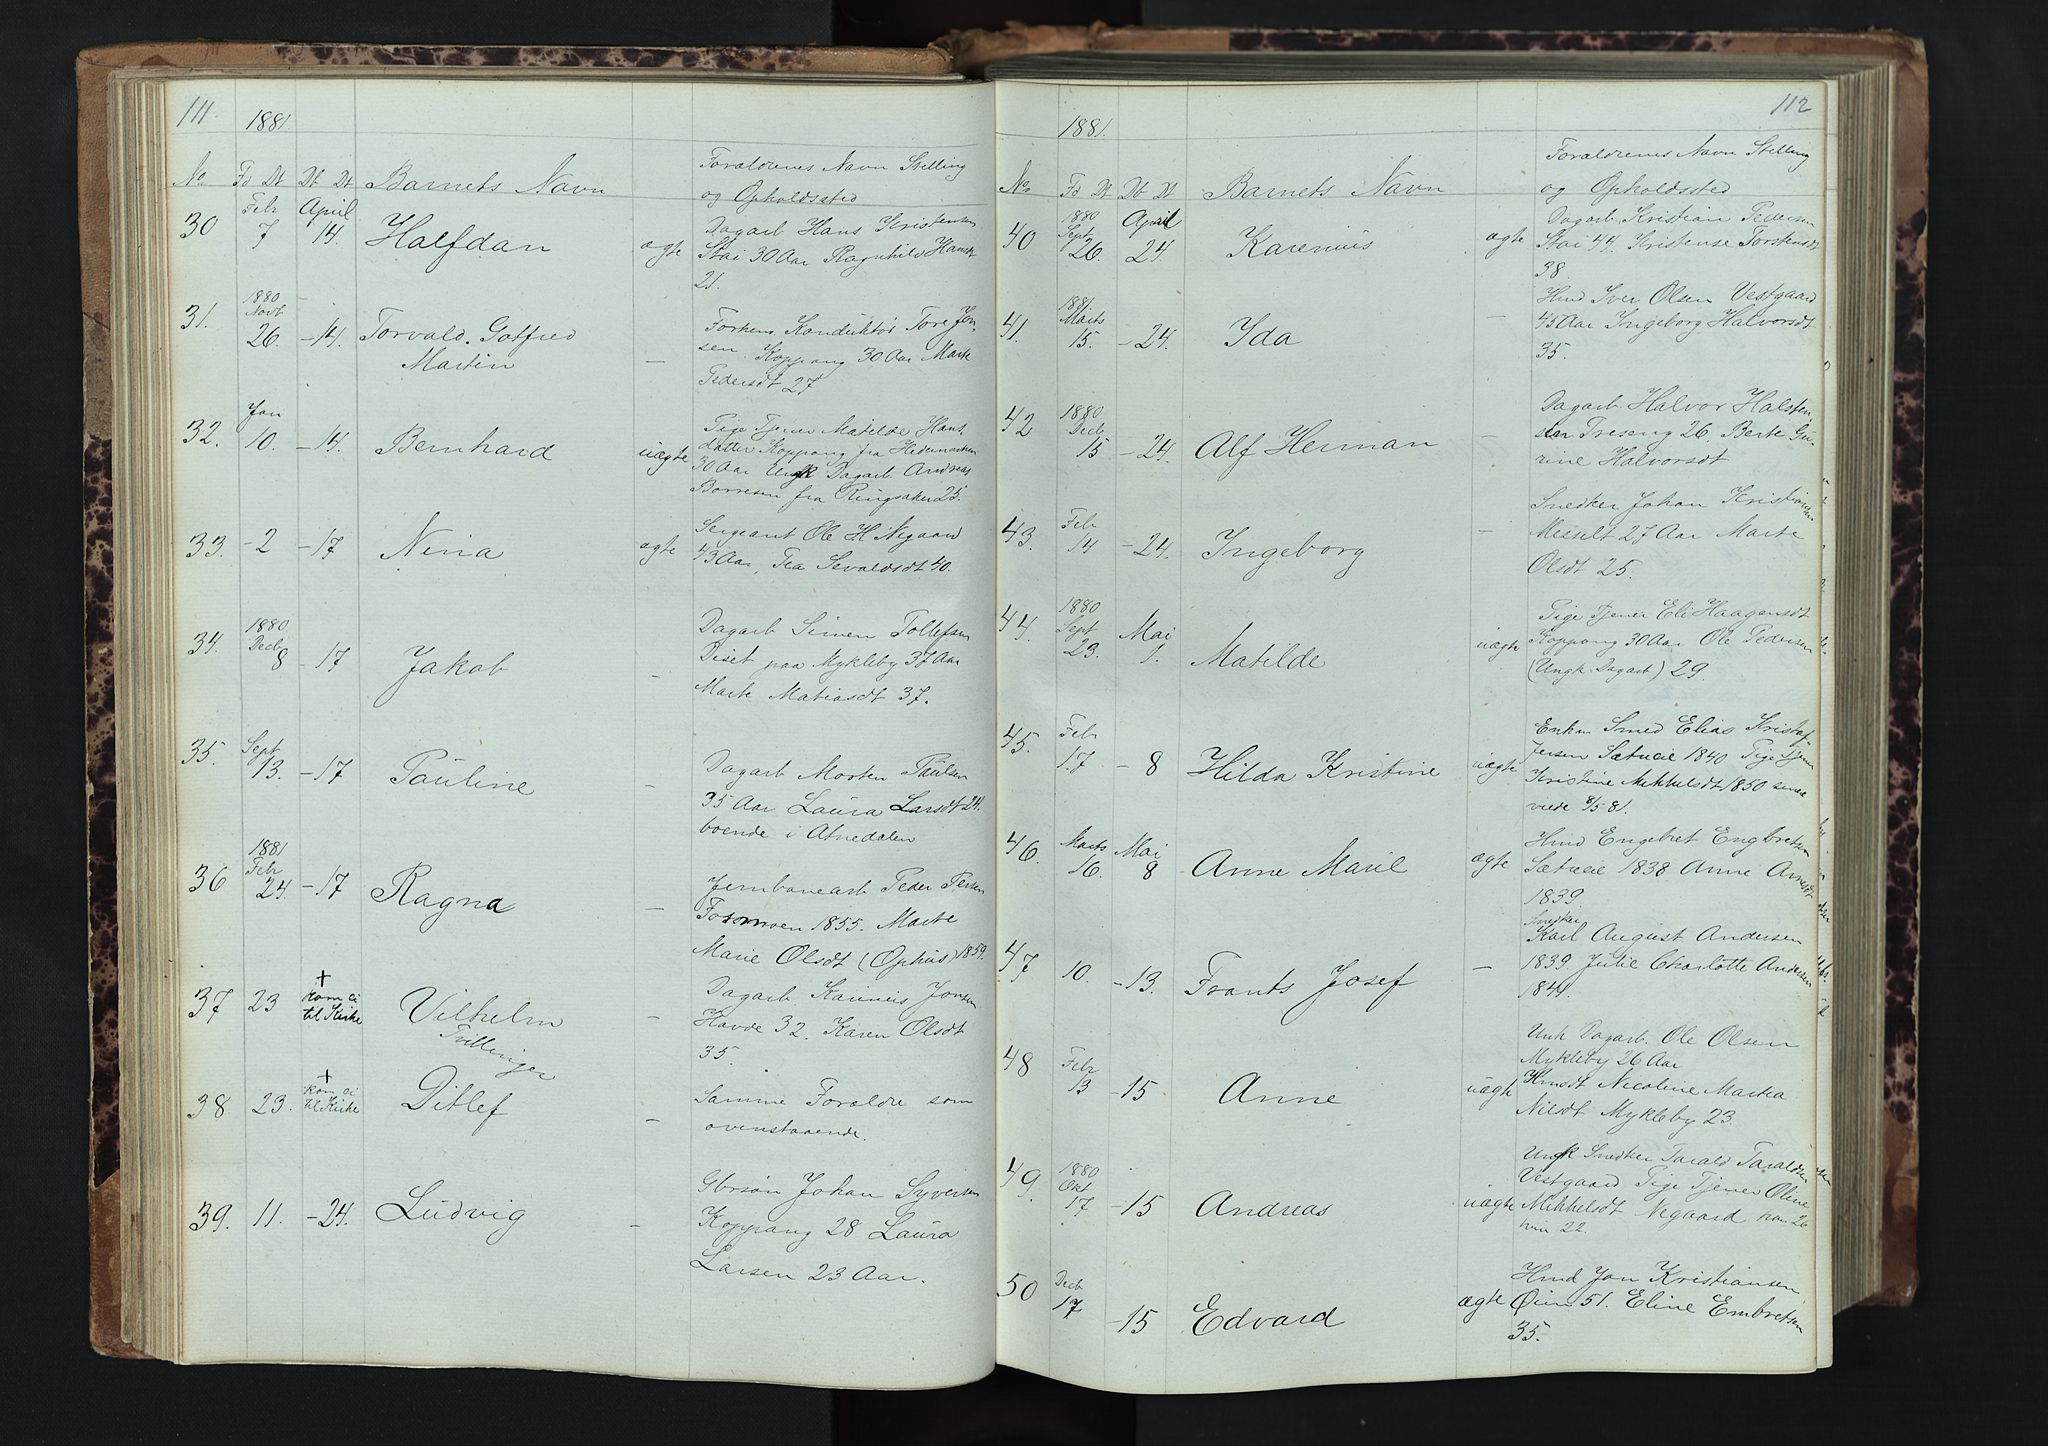 111.
1881
No Fd Dt Db Dt Barnets Navn
Forældrenes Navn Stilling
og Opholdssted
30 Febr 7 April 14. Halfdan ægte
Dagarb Hans Kristensen
Stai 30 Aar Ragnhild Hansdt
21.
31. 1880 Novb 26. -14. Torvald. Gotfred
Martin -
Konduktør Tore Jen-
sen Koppang 30 Aar Marte
Pedersdt 27
32. Jan 10. -14. Bernhard uægte
Pige Tjener Matilde Hans-
datter Koppang fra Hedemarken
30 Aar Ungk Dagarb Andreas
Borresen fra Ringsaker 25.
33. -2 -17 Nina ægte
Sergeant Ole H Negaard
43 Aar, Tea Sevaldsdt 40.
34. 1880 Decb 8 -17 Jakob -
Dagarb Simen Tollefsen
Diset paa Mykleby 37 Aar
Marte Matiasdt 37.
35. Sept 13. -17 Pauline -
Dagarb Morten Paulsen
35 Aar Laura Larsdt 24.
boende i Atnedalen
36 1881 Febr 24. -17 Ragna -
Jernbanearb Peder Persen
Fossmoen 1855. Marte
Marie Olsdt (Ophus) 1859.
37 23 + kom ei
til Kirke Vilhelm -
Tvillinger
Dagarb. Jonsen
Havde 32. Karen Olsdt
35.
38 23. + kom ei
til Kirke Ditlef -
Samme Forældre som
ovenstaaende.
39. 11. -24. Ludvig -
Gbrsøn Johan Syversen
Koppang 28 Laura
Larsen 23 Aar.
112
1881.
No. Fd Dt Db Dt Barnets Navn
Forældrenes Navn Stilling
og Opholdssted
40 1880 Sept 26. April 24. Karenius ægte
Dagarb Kristian Pedersen
Stai 44. Kristense Torstensdt
38.
41. 1881 Marts 15. -24. Ida -
Hmd Iver Olsen Vestgaard
45 Aar Ingeborg Halvorsdt
35.
42 1880 Decb 15 -24. Alf Herman -
Dagarb Halvor Halsten
sen Treseng 26. Berte Gu-
rine Halvorsdt
43. Febr 14 -24. Ingeborg -
Snedker Johan Kristiansen
Messelt 27 Aar Marte
Olsdt 25.
44. 1880 Sept 23. Mai 1. Matilde uægte
Pige Tjener Eli Haagensdt
Koppang 30 Aar Ole Pedersen
(Ungk Dagarb) 29.
45. Febr 17. -8 Hilda Kristine uægte
Enkm Smed Elias Kristof-
fersen Sætueie 1840 Pige Tjener
Kristine Mikkelsdt 1850 senere
viede 8/5 81.
46. Marts 16. Mai 8 Anne Maril ægte
Hmd Engebret Engbretsen
Sætueie 1838 Anne Arnesdt
1839.
47 10. -13. Frants Josef -
Snedker
Karl August Andersen
1839. Julie Charlotte Andersen
1844.
48 Febr 13 -15 Anne uægte
Unk Dagarb. Ole Olsen
Mykleby 26 Aar
Hmsdt Nicoline Martea
Nilsdt Mykleby 23.
49. 1880 Okt 17 -15 Andreas uægte
Ungk Snedker Tarald Taraldsen
Vestgaard Pige Tjener Oline
Mikkelsdt Negaard han 26
hun 22.
50 Decb 17 -15 Edvard ægte
Hmd Jon Kristiansen
Øien 51. Eline Embretsen
35.